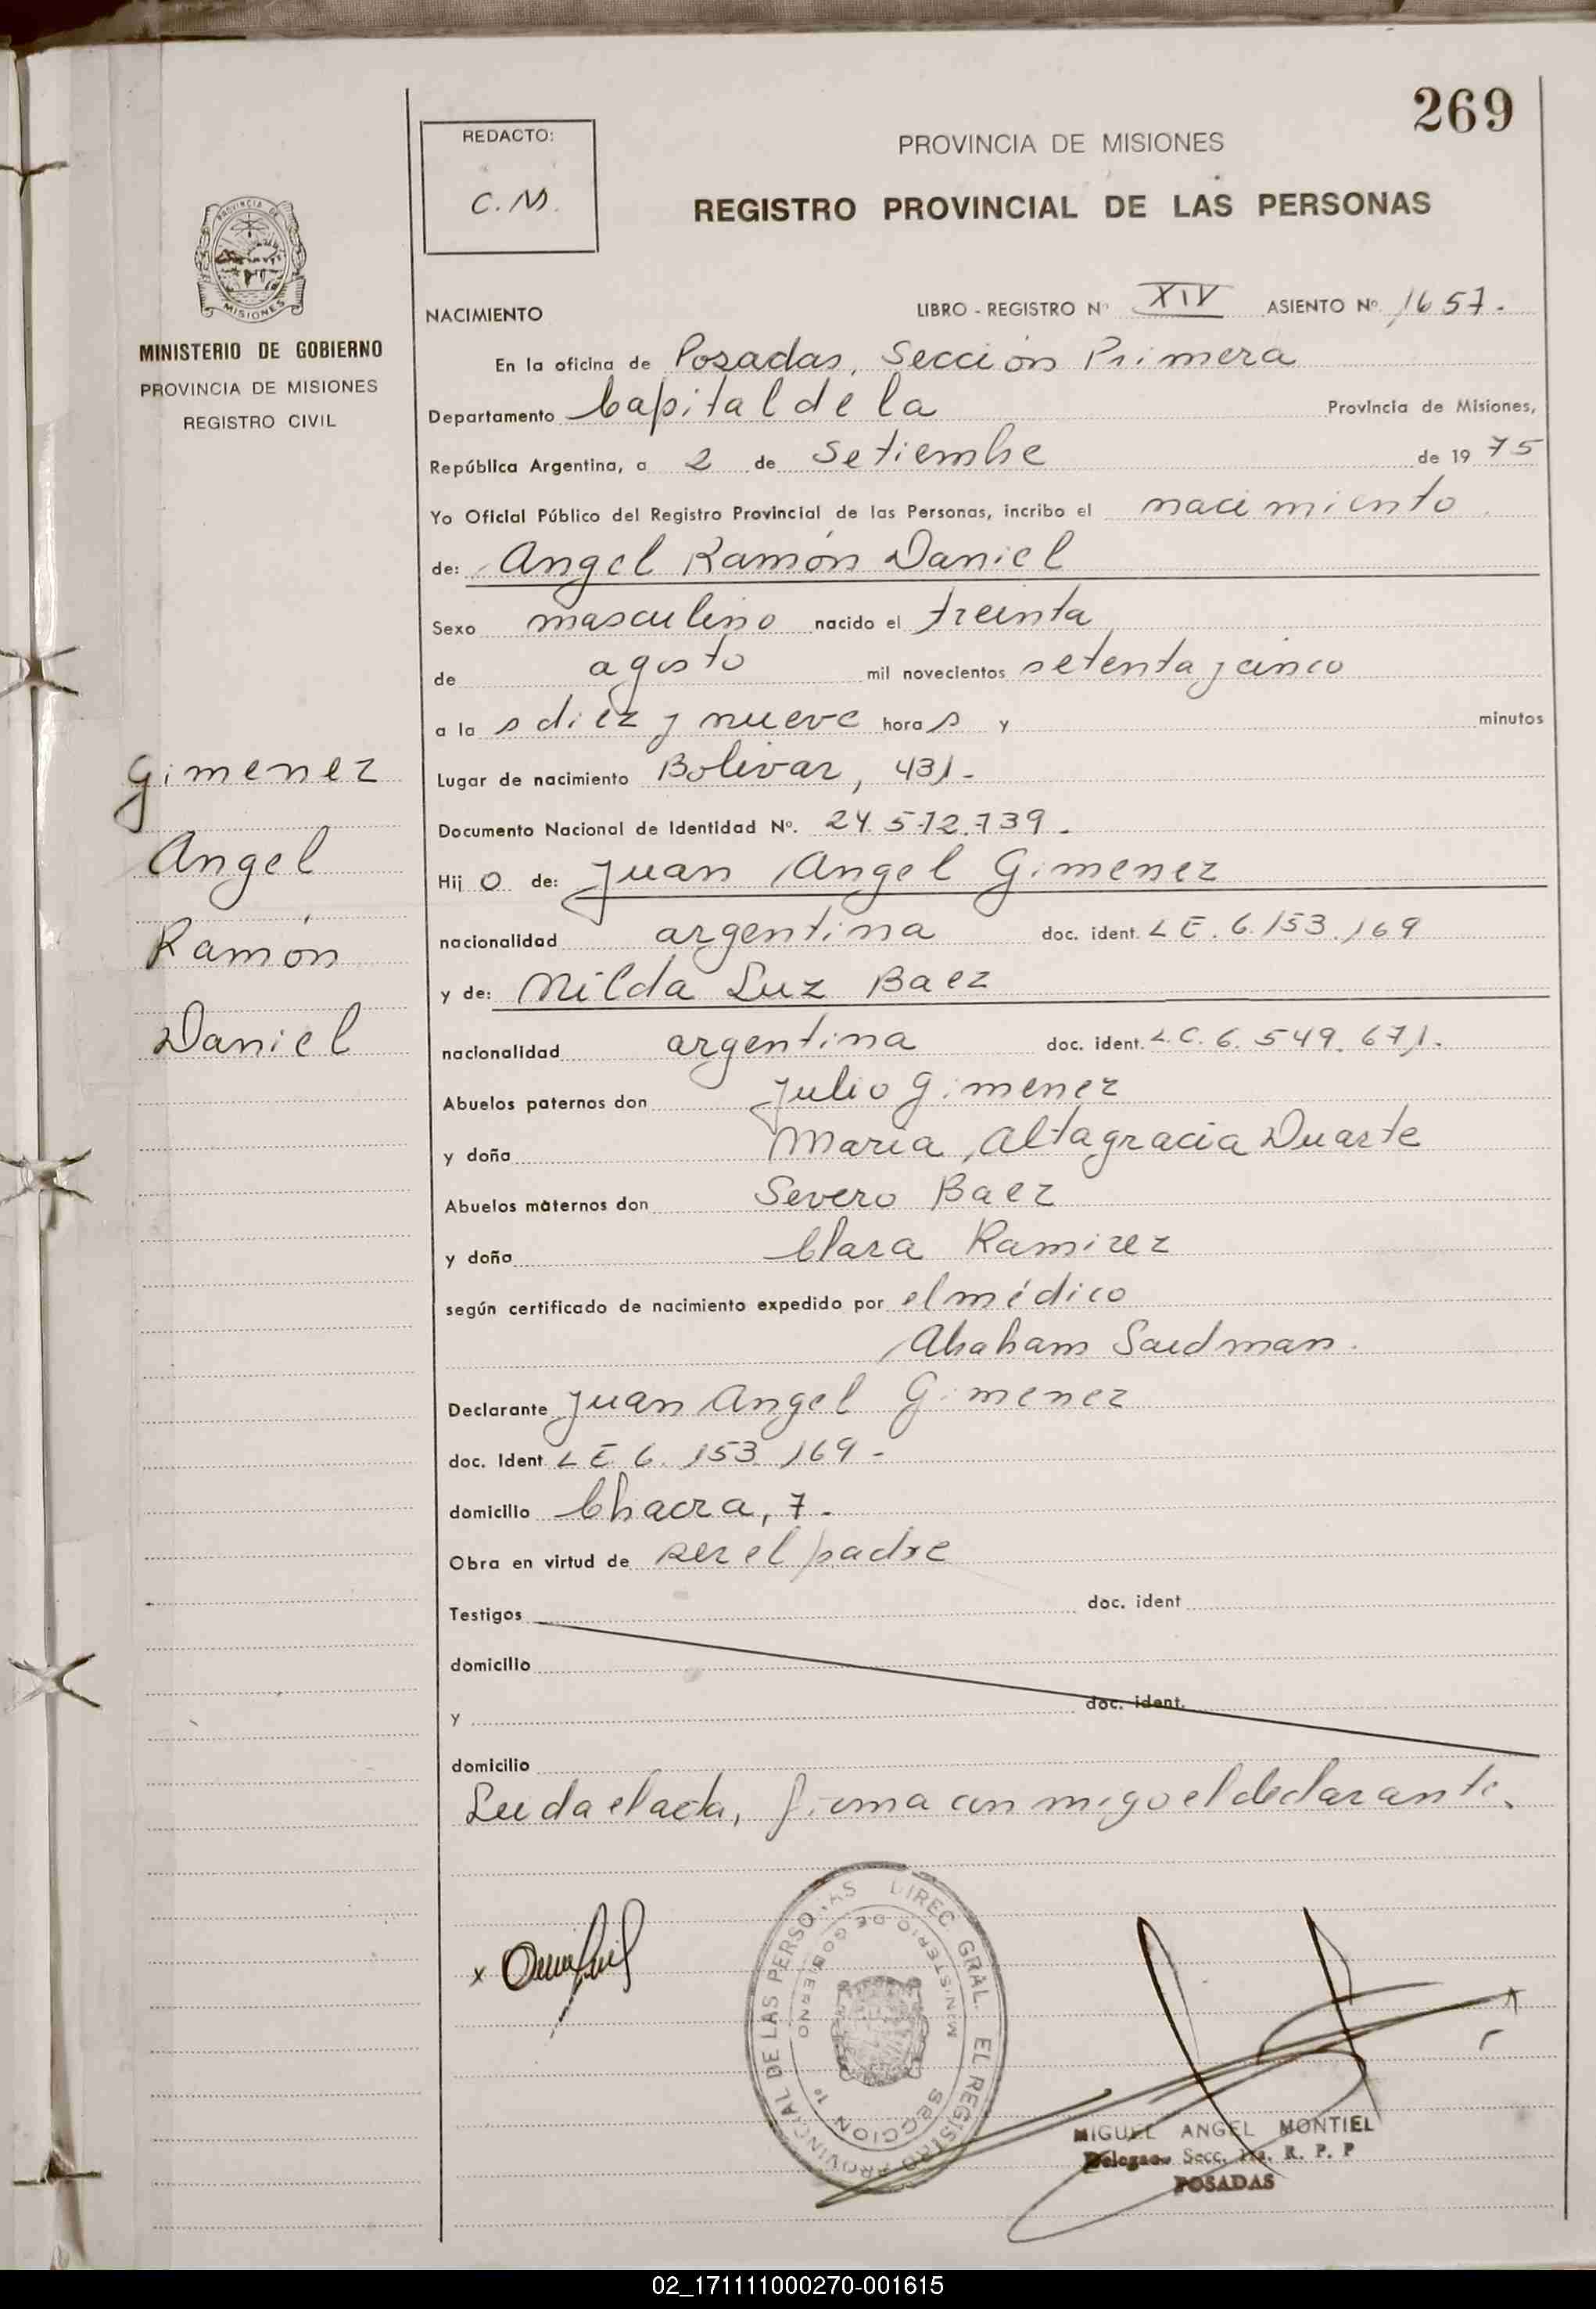 269
REDACTO:
C.M.
PROVINCIA DE MISIONES
REGISTRO PROVINCIAL DE LAS PERSONAS
PROVINCIA DE
MISIONES
MINISTERIO DE GOBIERNO
PROVINCIA DE MISIONES
REGISTRO CIVIL
NACIMIENTO LIBRO - REGISTRO Nº XIV ASIENTO Nº 1657.
En la oficina de Posadas, Sección Primera
Departamento Capital de la Provincia de Misiones,
República Argentina, a 2 de Setiembre de 1975
Yo Oficial Público del Registro Provincial de las Personas, incribo el nacimiento
de: Angel Ramón Daniel
Sexo masculino nacido el treinta
de agosto mil novecientos setenta y cinco
a las diez y nueve horas y minutos
Lugar de nacimiento Bolivar, 431-
Documento Nacional de Identidad Nº. 24.572.739.
Hijo de: Juan Angel Gimenez
nacionalidad argentina doc. ident. LE. 6.153.169
y de: Nilda Luz Baez
nacionalidad argentina doc. ident. L.C. 6.549.671.
Abuelos paternos don Julio Gimenez
y doña Maria Altagracia Duarte
Abuelos maternos don Severo Baez
y doña Clara Ramirez
según certificado de nacimiento expedido por el médico
Abraham Saidman.
Declarante Juan Angel Gimenez
doc. Ident LE 6.153.169-
domicilio Chacra, 7.
Obra en virtud de ser el padre
Testigos doc. ident
domicilio
y doc. ident.
domicilio
Leida el acta, firma conmigo el declarante.
Gimenez
Angel
Ramón
Daniel
x
DIREC. GRAL. EL REGISTRO PROVINCIAL DE LAS PERSONAS
MINISTERIO DE GOBIERNO
SECCION 1º
MIGUEL ANGEL MONTIEL
Delegado Secc. 1ra. R. P. P
POSADAS
02_171111000270-001615